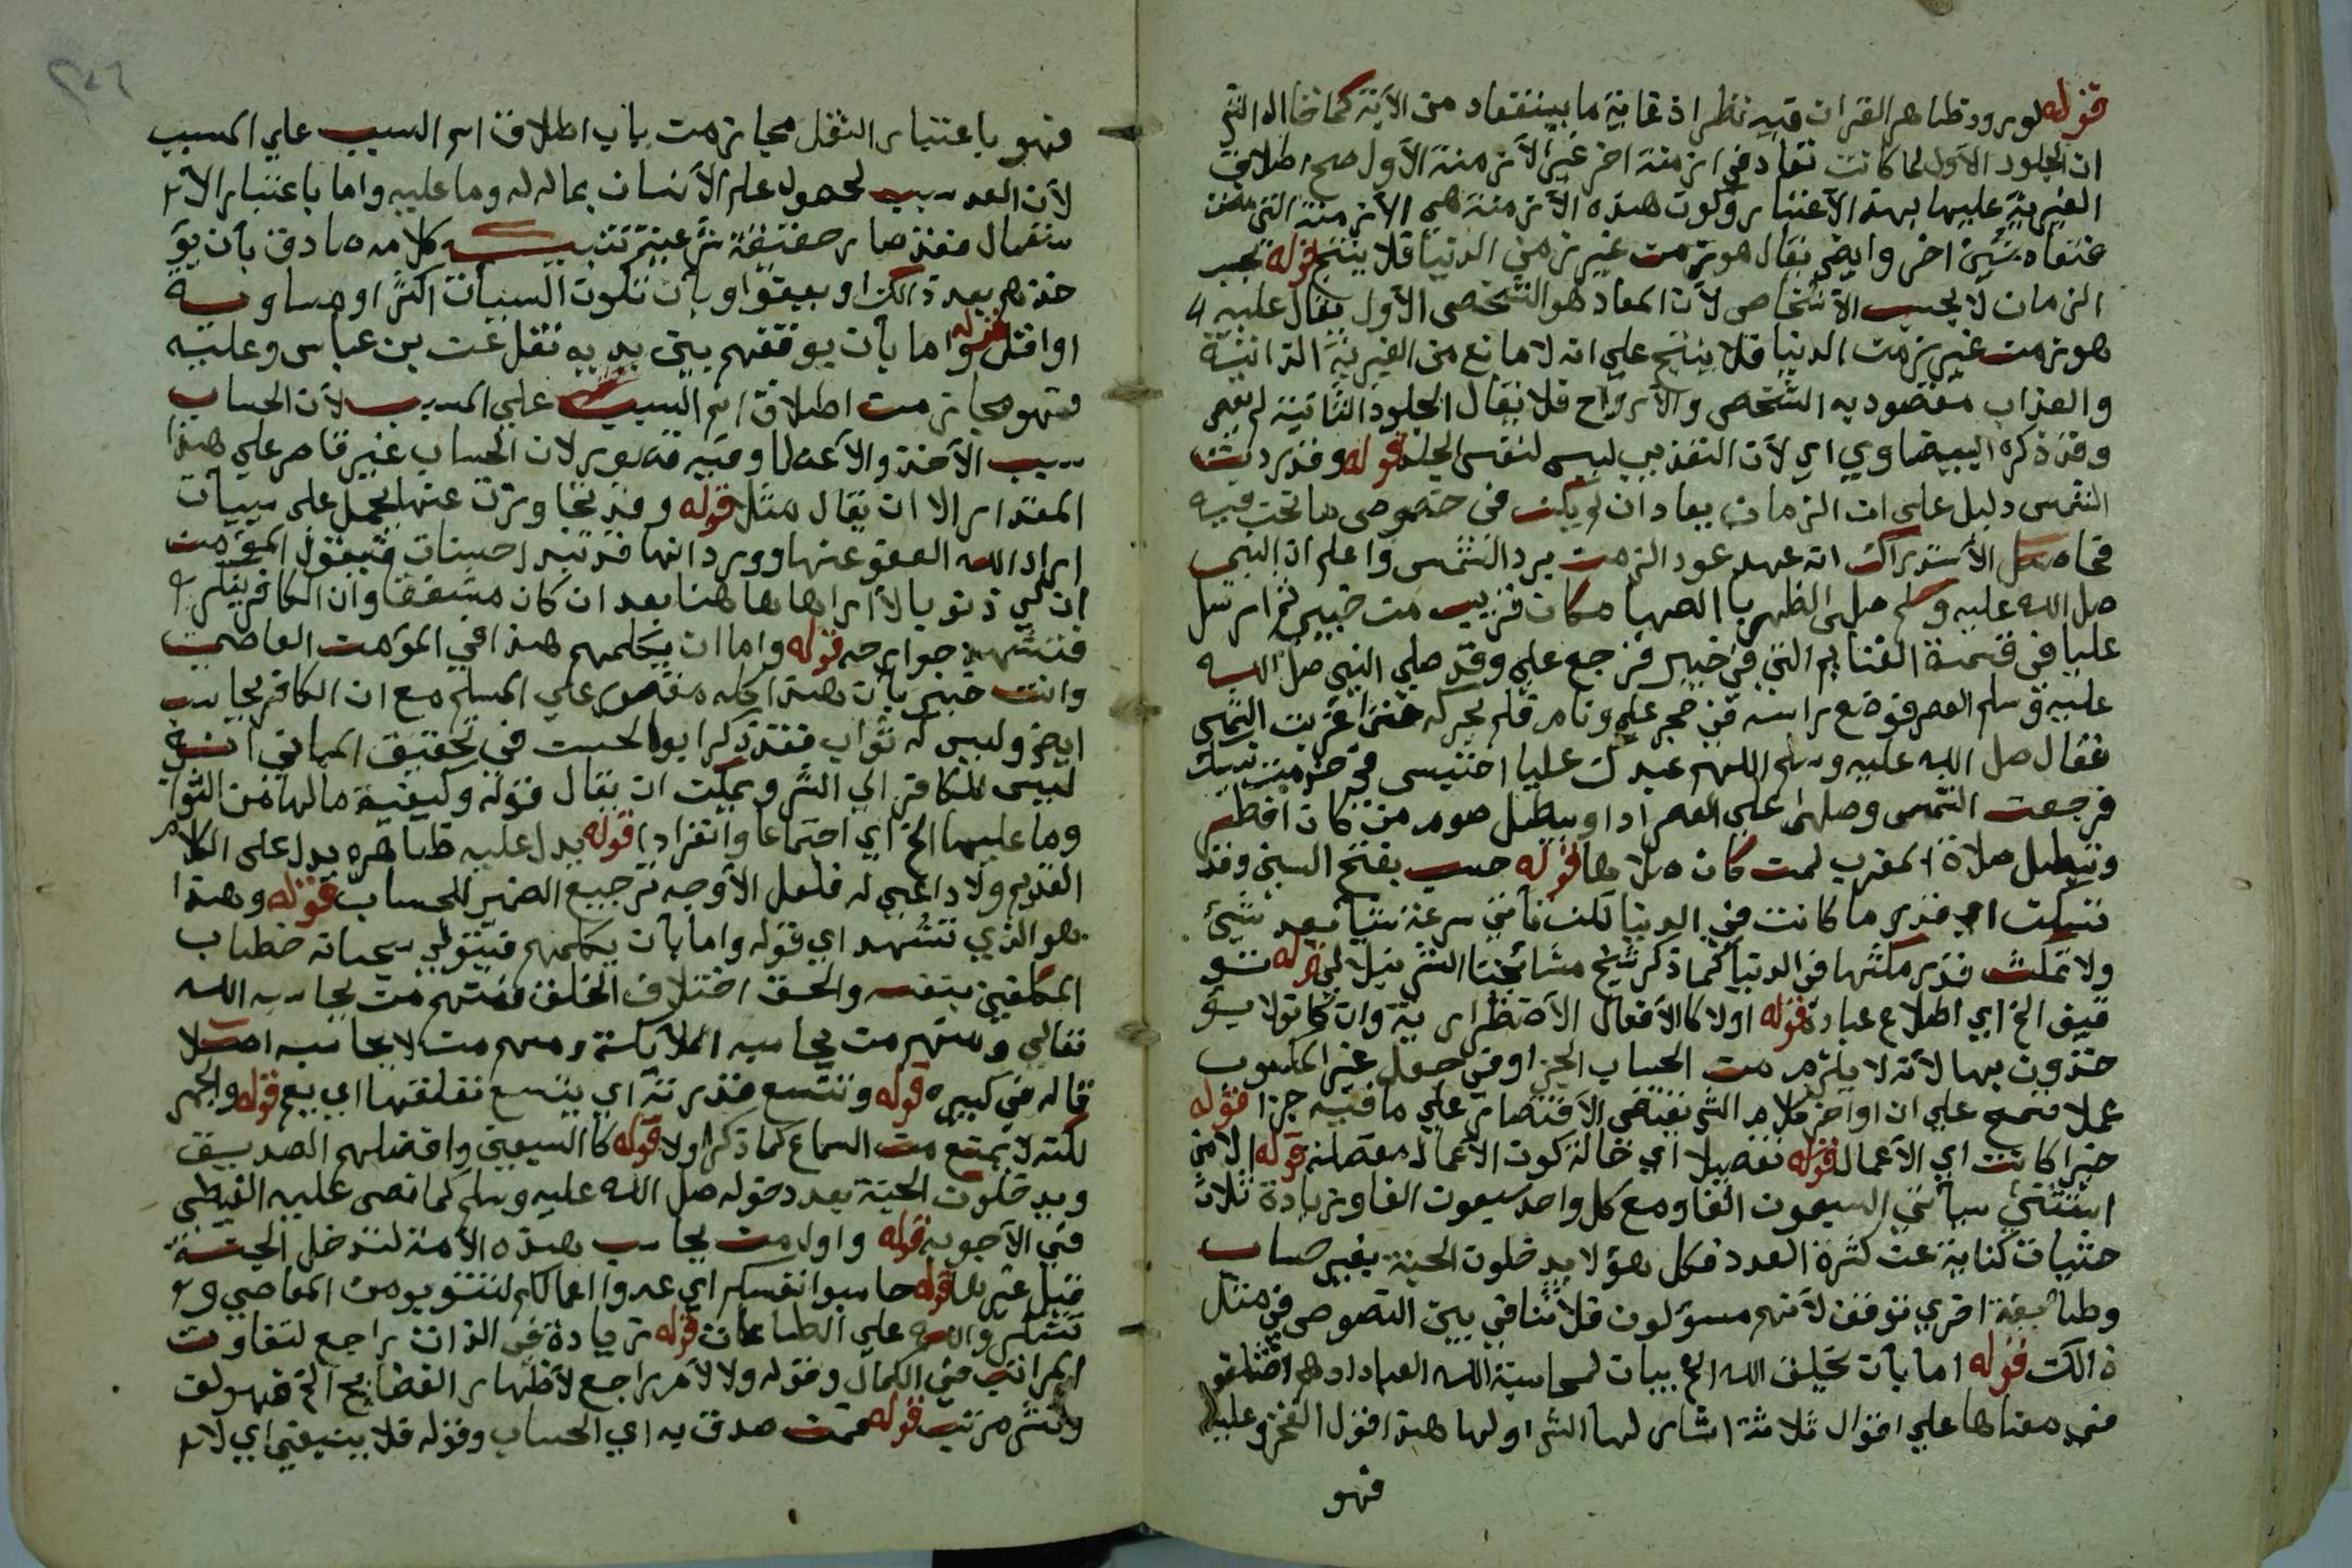 قوله لورود ظاهر القران فيه نظر اذ غاية ما يستفاد من الآية كما قاله الش
ان الجلود الأول لما كانت تعاد في ازمنة اخر غير الأزمنة الأول صح اطلاق
الغيرية عليها بهذا الاعتبار وكون هذه الأزمنة هي الأزمنة التي مضت
شيئ اخر وايض يقال هو زمن غير زمن الدنيا فلا ينتج قوله بحسب
الزمان لا بحسب الأشخاص لأن المعاد هو الشخص الأول يقال عليه
هو زمن غير زمن الدنيا فلا ينتج علي انه لا مانع من الغيرية الذاتية
والعذاب مقصود به الشخص والأرواح فلا يقال الجلود الثانية لم تعص
وقد ذكره البيضاوي اي لأن التعذيب ليس لنفس الجلد قوله وقد ردت
الشمس دليل على ان الزمان يعاد ان لم يكن في خصوص ما نحن فيه
الأستدراك انه عهد عود الزمن برد الشمس واعلم ان النبي
صلى الله عليه وسلم صلى الظهر بالصهبا مكان قريب من خيبر ثم ارسل
عليا في قسمة الغنايم التي في خيبر فرجع علي وقد صلي النبي صلى الله
عليه وسلم العصر فوضع راسه في حجر علي ونام فلم يحركه حتى غربت الشمس
فقال صلى الله عليه وسلم اللهم عبدك عليا احتبس في خدمة نبيك
فرجعت الشمس وصلى علي العصر اداء ويبطل صوم من كان افطر
وتبطل صلاة المغرب لمن كان صلاها قوله حسب بفتح السين وقد
تسكن اي قدر ما كانت في الدنيا لكن تأتي سرعة شيأ بعد شيئ
ولا تمكث قدر مكثها في الدنيا كما ذكر شيخ مشائخنا قوله تو
قيف الخ اي اطلاع عباده قوله اولا كالأفعال الأضطرارية وان كانوا لا يو
خذون بها لأنه لا يلزم من الحساب الجزا وفي جعل غير المكسوب
عملا تسمح علي ان اواخر كلام الش تقتضي الأقتصار علي ما فيه جزا قوله
خيرا كانت اي الأعمال قوله تفصيلا اي حالة كون الأعمال مفصلة قوله الا من
استثني سيأتي السبعون الفا ومع كل واحد سبعون الفا وزيادة ثلاث
حثيات كناية عن كثرة العدد فكل هؤلا يدخلون الجنة بغير حساب
وطائفة اخري توقف لأنهم مسؤلون فلا تنافي بين النصوص في مثل
ذالك قوله اما بأن يخلق الله الخ بيان لمحاسبة الله العباد وهم اختلفو
في معناها علي اقوال ثلاثة اشار لها الش اولها هذا قول الفخر وعليه
فهو
فهو باعتبار الثقل مجاز من باب اطلاق اسم السبب علي المسبب
لأن العد سبب لحصول علم الأنسان بماله وما عليه واما باعتبار الأ
ستعمال فقد صار حقيقة شرعية تنبيه كلامه صادق بأن يؤ
خذهم بعد ذالك او يعفوا وبأن تكون السيأت اكثر او مساوية
او اقل قوله واما بأن يوقفهم بين يديه نقل عن بن عباس وعليه
فهو مجاز من اطلاق اسم السبب علي المسبب لأن الحساب
سبب الأخذ والأعطا وفيه قصور لان الحساب غير قاصر علي هذا
المقدار الا ان يقال مثل قوله وقد تجاوزت عنها يحمل علي سيأت
اراد الله العفو عنها وورد انها قد تبدل حسنات فيقول المؤمن
ان لي ذنوبا لا اراها هاهنا بعد ان كان مشفقا وان الكافر ينكر
فتشهد جوارحه قوله واما ان يكلمهم هذا في المؤمن العاصي
وانت خبير بأن هذا كله مقصور علي المسلم مع ان الكافر يحاسب
ايض وليس له ثواب فقد ذكر ابو الحسن في تحقيق المباني انه
ليس للكافر الي الش ويمكن ان يقال قوله وكيفية مالها من الثواب
وما عليها الخ اي اجتماعا وانفرادا قوله يدل عليه ظاهره يدل على الكلام
القديم ولا داعي له فلعل الأوجه ترجيع الضمير للحساب قوله وهذا
هو الذي تشهد اي قوله واما بأن يكلمهم فيتولي سبحانه خطاب
المكلفين بنفسه والحق اختلاف الخلق فمنهم من يحاسبه الله
تعالي ومنهم من يحاسبه الملائكة ومنهم من لا يحاسب اصلا
قاله في كبيره قوله وتتسع قدرته اي يتسع تعلقها اي يعم قوله والجهر
لكنه لا يمنع من السماع كما ذكر اولا قوله كالسبعين وافضلهم الصديق
ويدخلون الجنة بعد دخوله صلى الله عليه وسلم كما نص عليه القبطي
في الأجوبة قوله واول من يحاسب هذه الأمة لتدخل الجنة
قبل غيرها قوله حاسبوا انفسكم اي عدوا اعمالكم لتتوبو من المعاصي و
تشكروا الله علي الطاعات قوله زيادة في الذات راجع لتفاوت
المراتب في الكمال وقوله ولا لأمر راجع لأظهار الفضايح الخ فهو لف
ونشر مرتب قوله فمن صدق به اي الحساب وقوله فلا ينبغي اي لا